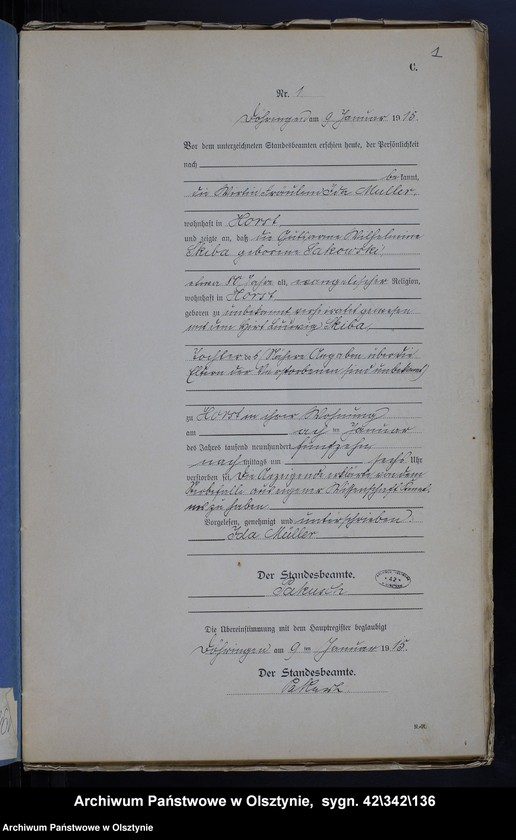 1
C.
Nr. 1
Döhringen am 9 Januar 1915.
Vor dem unterzeichneten Standesbeamten erschien heute, der Persönlichkeit
nach
be kannt,
die Wirtin Fräulein Ida Müller
wohnhaft in Horst
und zeigte an, daß die Wilhelmine
Skiba geborene Sakowski,
etwa 80 Jahre alt, evangelischer Religion,
wohnhaft in Horst
geboren zu unbekannt verheiratet gewesen
mit dem Ludwig Skiba,
Tochter des Nähere Angaben über die
Eltern der Verstorbenen sind unbekannt
zu Horst in ihrer Wohnung
am acht en Januar
des Jahres tausend neunhundert fünfzehn
nach mittags um sechs Uhr
verstorben sei. Die Anzeigende erklärte von dem
Sterbefalle aus eigener Wissenschaft Kennt
nis zu haben
Vorgelesen, genehmigt und unterschrieben.
Ida Müller
Der Standesbeamte.
Die Übereinstimmung mit dem Hauptregister beglaubigt
Döhringen am 9 en Januar 1915.
Der Standesbeamte.
Archiwum Państwowe w Olsztynie, sygn. 42\342\136
Archiwum Państwowe w Olsztynie